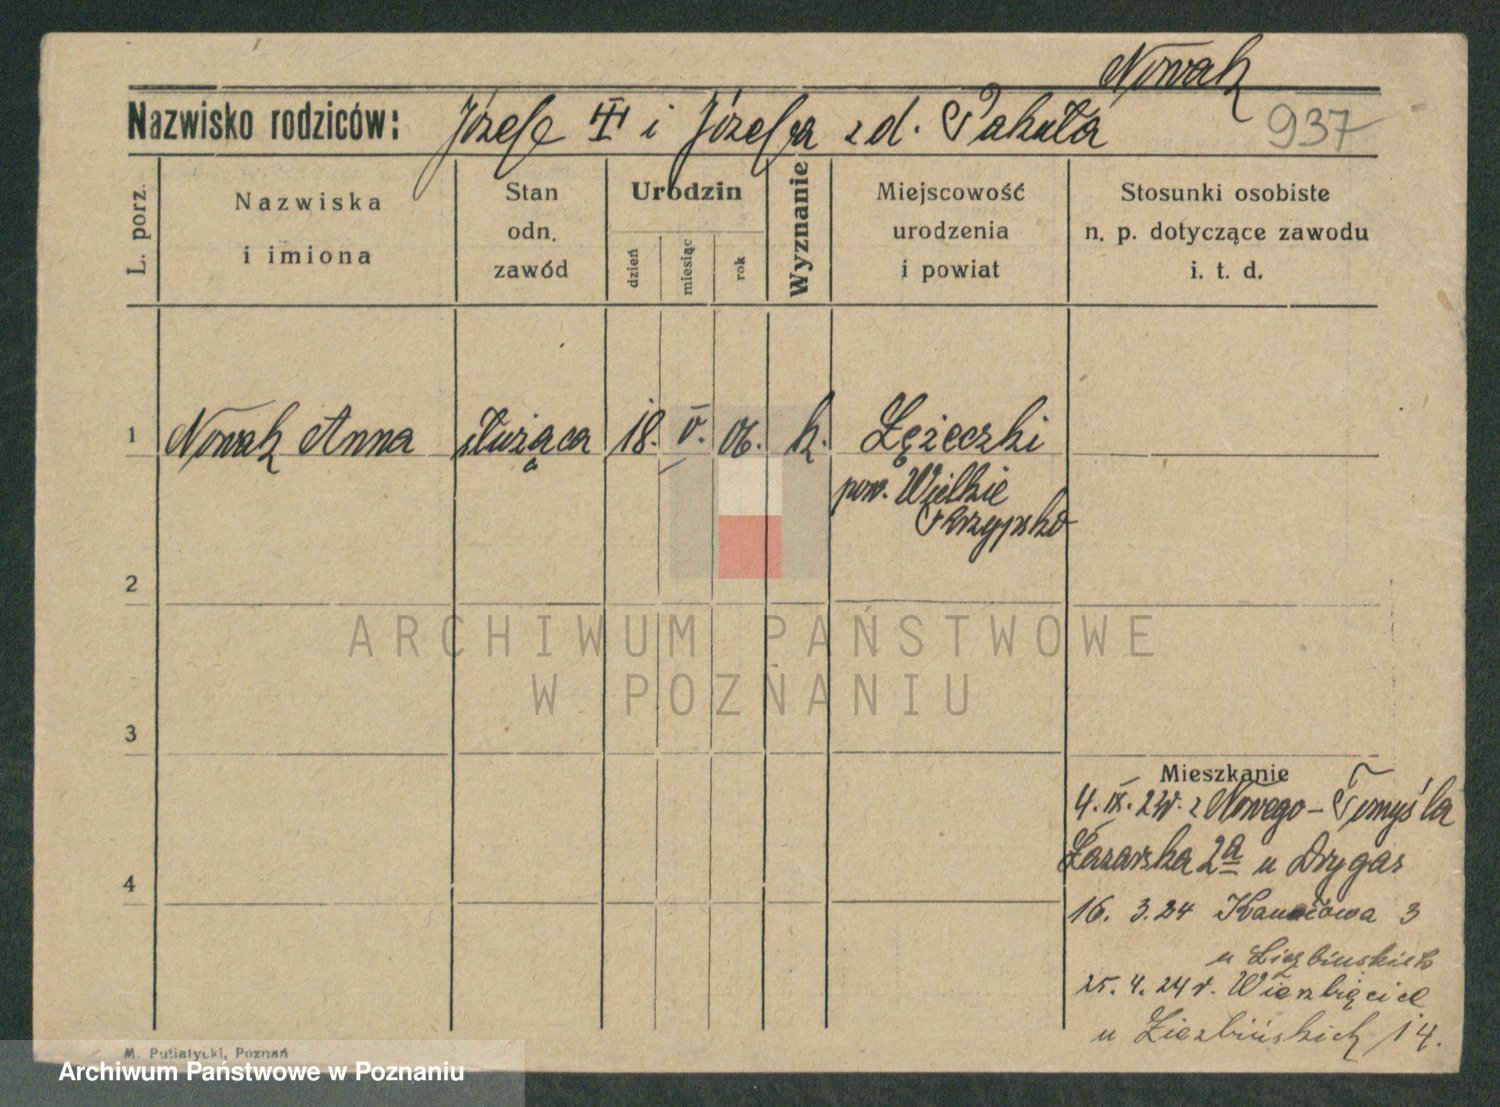 Nowak
Nazwisko rodziców: Józef i Józefa z d. Pakuła
937
L. porz.
Nazwiska
i imiona
Stan
odn.
zawód
Urodzin
dzień
miesiąc
rok
Wyznanie
Miejscowość
urodzenia
i powiat
Stosunki osobiste
n. p. dotyczące zawodu
i. t. d.
1 Nowak Anna służąca 18. V. 06. k. Łężeczki
pow. Wielkie
2
ARCHIWUM PAŃSTWOWE
W POZNANIU
3
Mieszkanie
4. IX. z Nowego-Tomyśla
Łazarska 2a u Drygas
4
16. 3.24 3
u
25. 4. 24 r. Wierzbięcice
u 14.
M. Putiatycki, Poznań
Archiwum Państwowe w Poznaniu